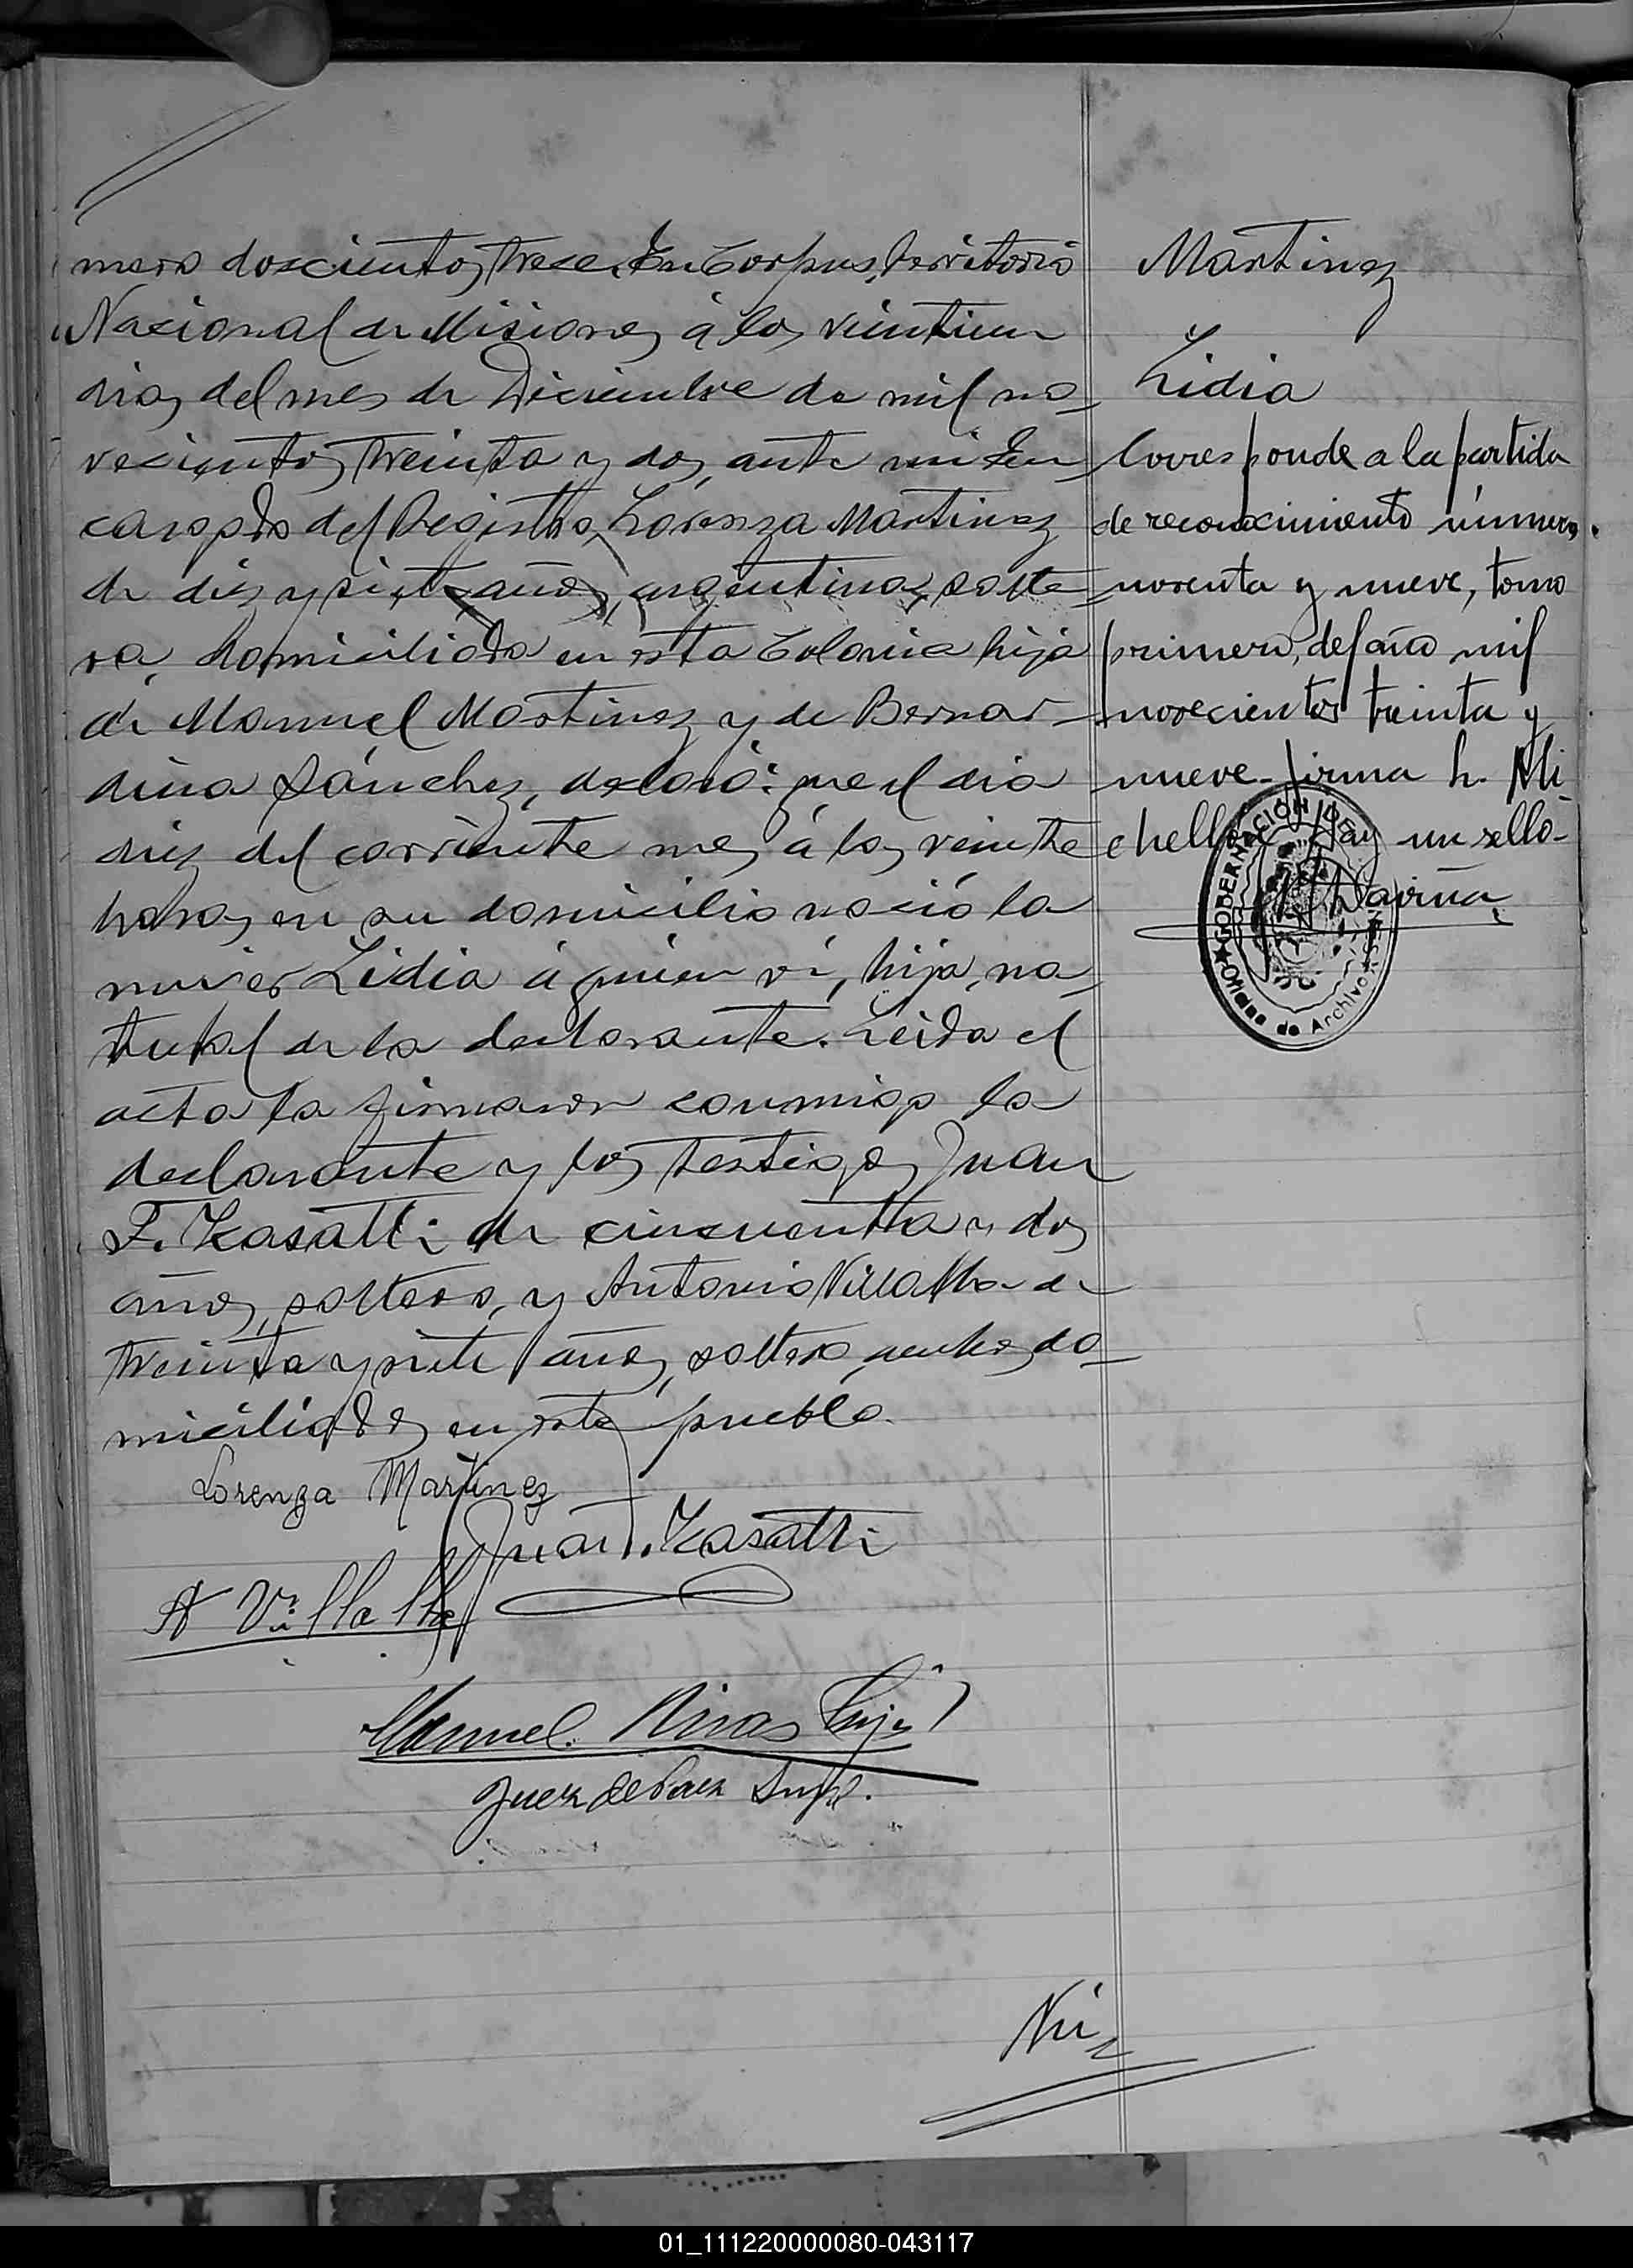 mero doscientos trece. En Corpus, Territorio
Nacional de Misiones á los veintiun
dias del mes de Diciembre de mil no-
vecientos treinta y dos, ante mi En-
cargado del Registro, Lorenza Martinez
de diez y siete años, argentina, solte-
ra, domiciliada en esta Colonia hija
de Manuel Martinez y de Bernar-
dina Sánchez, declaró: que el dia
diez del corriente mes á las veinte
horas en su domicilio nació la
mujer Lidia á quien vi, hija na-
tural de la declarante. Leida el
acta la firmaron conmigo la
declarante y los testigos Juan
F. Kasatti de cincuenta y dos
años, soltero, y Antonio Villalba de
treinta y siete años, soltero, ambos do-
miciliados en este pueblo.
Lorenza Martinez
Juan F. Kasatti
A Villalba
Manuel Rivas
Juez de Paz Supl.
Martinez
Lidia
Corresponde a la partida
de reconocimiento número
noventa y nueve, tomo
primero, del año mil
novecientos treinta y
nueve. firma h. Mi-
chell Hay un sello-
GOBERNACIÓN DE
Oficina de Archivo
Nú
01_111220000080-043117